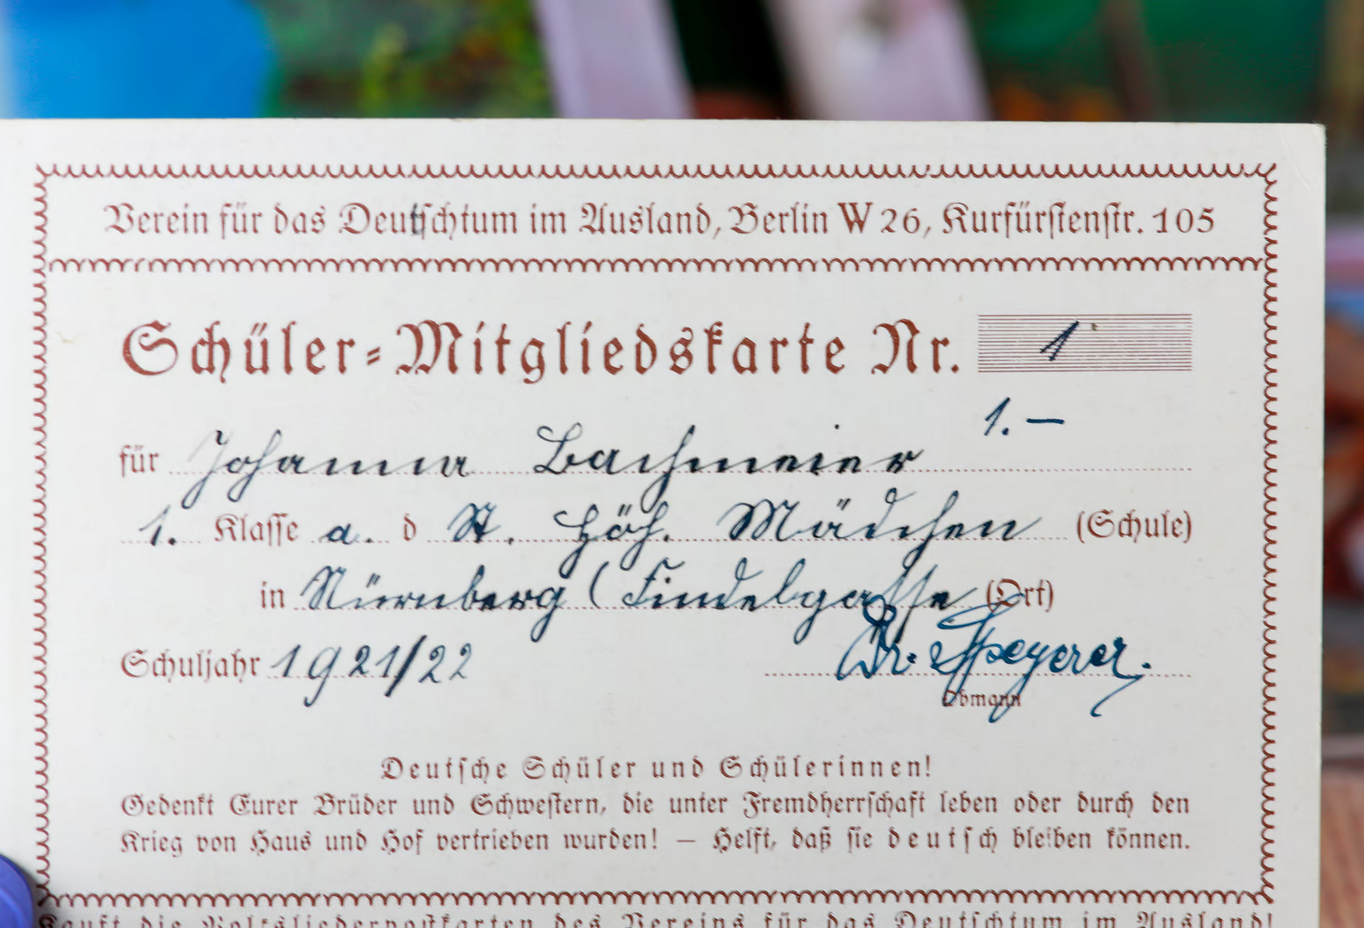 Verein für das Deutschtum im Ausland, Berlin W 26, Kurfürstenstr. 105
Schüler-Mitgliedskarte Nr. 1
1.—
für Johanna Bachmeier
1. Klasse a. d St. Höh. Mädchen (Schule)
in Nürnberg (Findelgasse (Ort)
Schuljahr 1921/22 Dr. Speyerer.
Obmann
Deutsche Schüler und Schülerinnen!
Gedenkt Eurer Brüder und Schwestern, die unter Fremdherrschaft leben oder durch den
Krieg von Haus und Hof vertrieben wurden! — Helft, daß sie deutsch bleiben können.
Kauft die Volksliederpostkarten des Vereins für das Deutschtum im Ausland!